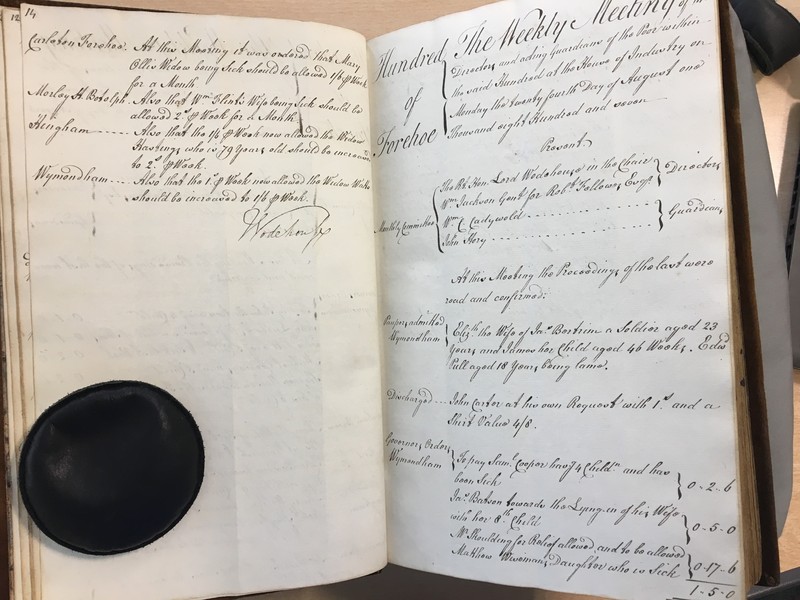 12
14
Carleton Forehoe. At this Meeting it was ordered that Mary
Ollis Widow being Sick should be allowed 1/6 ℔ Week
for a Month
Morley St. Botolph. Also that Wm. Flints Wife being Sick should be
allowed 2s. ℔ Week for a Month
Hingham Also that the 1/6 ℔ Week now allowed the Widow
Hastings who is 79 Years old should be increased
to 2s. ℔ Week.
Wymondham Also that the 1s. ℔ Week now allowed the Widow
should be increased to 1/6 ℔ Week.
Wodehouse
Hundred of Forehoe
The Weekly Meeting of the
Directors and acting Guardians of the Poor within
the said Hundred at the House of Industry on
Monday the twenty fourth Day of August one
Thousand eight Hundred and seven
Present
Monthly Committee
The Rt. Hon. Lord Wodehouse in the Chair
Wm. Jackson Gent. for Robt. Fellowes Esqr.
Directors
Wm. C. Cadywold
John Hory
Guardians
At this Meeting the Proceedings of the last were
read and confirmed:
Paupers admitted
Wymondham
Elizth. the Wife of Jas. Bertrim a Soldier aged 23
Years and James her Child aged 46 Weeks. Edwd.
Pull aged 18 Years being lame.
Discharged John Carter at his own Request with 1s. and a
Shirt Value 4/8.
Governors Orders
Wymondham
To pay Saml. Cooper havg. 4 Childn. and has
been Sick 0-2-6
Jas. Batson towards the Lying-in of his Wife
with her 8th. Child 0-5-0
Mr. Skoulding for Relief allowed and to be allowed
Matthew Daughter who is Sick 0-17-6
1-5-0